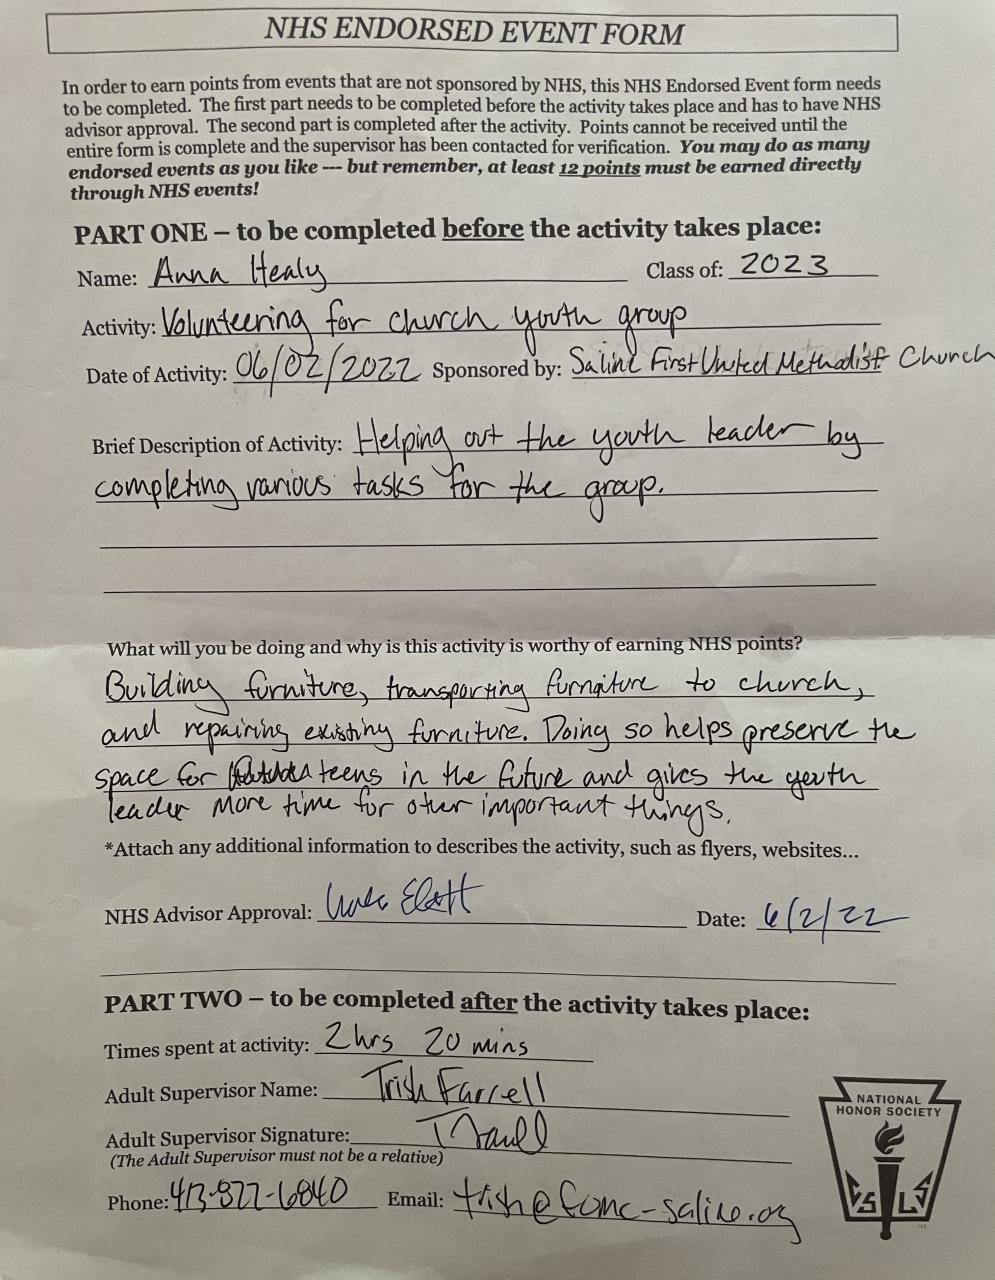 NHS ENDORSED EVENT FORM
In order to earn points from events that are not sponsored by NHS, this NHS Endorsed Event form needs
to be completed. The first part needs to be completed before the activity takes place and has to have NHS
advisor approval. The second part is completed after the activity. Points cannot be received until the
entire form is complete and the supervisor has been contacted for verification. You may do as many
endorsed events as you like --- but remember, at least 12 points must be earned directly
through NHS events!
PART ONE – to be completed before the activity takes place:
Name: Anna Healy Class of: 2023
Activity: Volunteering for church youth group
Date of Activity: 06/02/2022 Sponsored by: Saline First United Methodist Church
Brief Description of Activity: Helping out the youth leader by
completing various tasks for the group.
What will you be doing and why is this activity is worthy of earning NHS points?
Building furniture, transporting furniture to church,
and repairing existing furniture. Doing so helps preserve the
space for teens in the future and gives the youth
leader more time for other important things.
*Attach any additional information to describes the activity, such as flyers, websites...
NHS Advisor Approval: Date: 6/2/22
PART TWO – to be completed after the activity takes place:
Times spent at activity: 2 hrs 20 mins
Adult Supervisor Name: Trish Farrell
Adult Supervisor Signature:
(The Adult Supervisor must not be a relative)
Phone: 413-827-6840 Email: trish@fumc-saline.org
NATIONAL
HONOR SOCIETY
C S L S